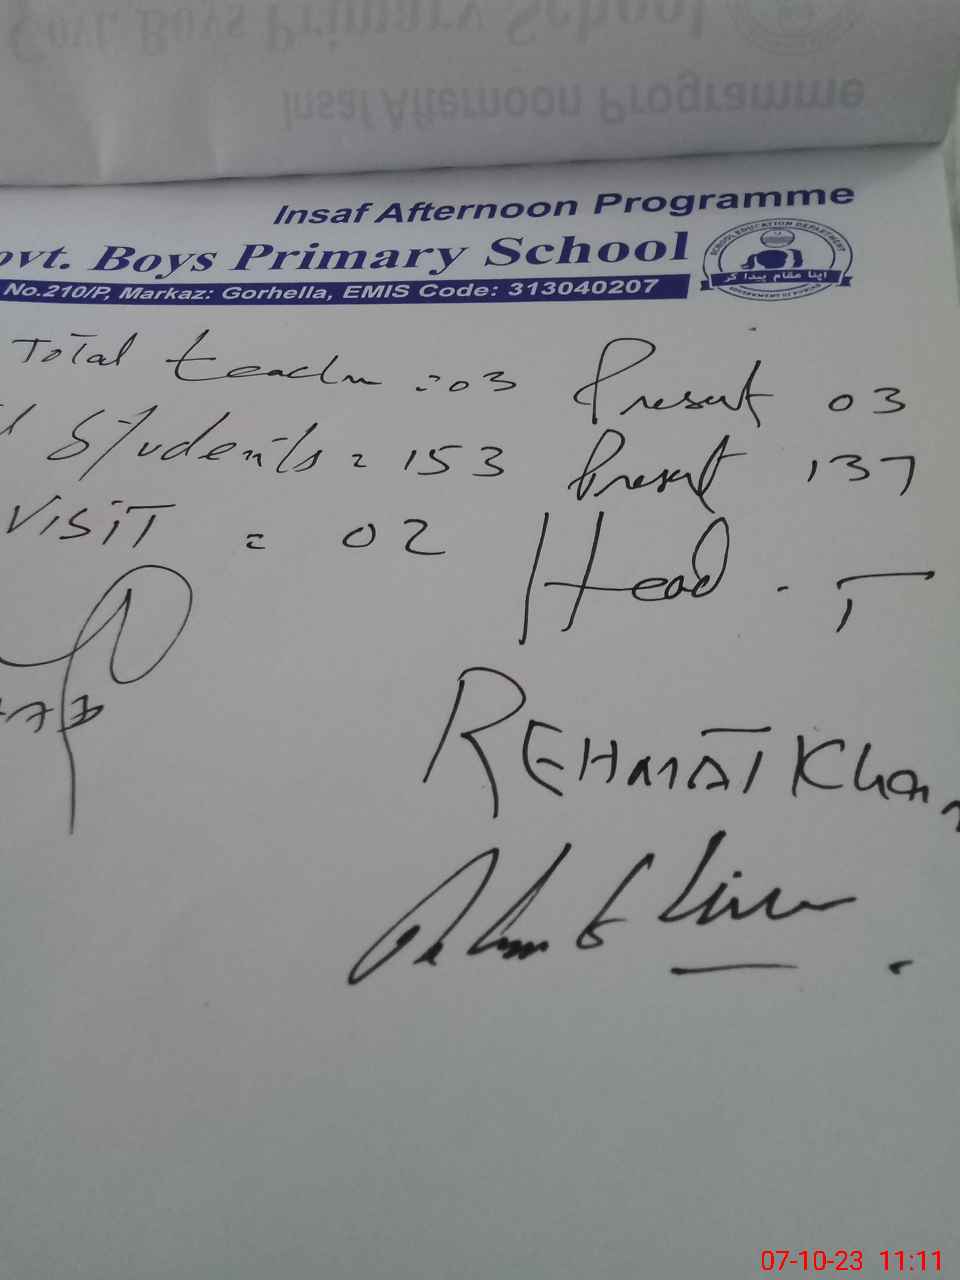 Insaf Afternoon Programme
Govt. Boys Primary School
Insaf Afternoon Programme
ovt. Boys Primary School
No.210/P, Markaz: Gorhella, EMIS Code: 313040207
SCHOOL EDUCATION DEPARTMENT
اپنا مقام پیدا کر
GOVERNMENT OF PUNJAB
Total teacher = 03 Present 03
Students = 153 Present 137
VISIT = 02
Head . T
REHMAT Khan
07-10-23 11:11